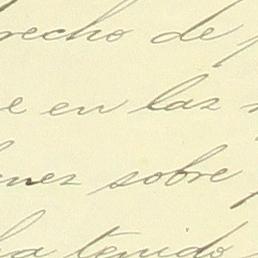 recho de
e en laz
nez sobre
ha tenido